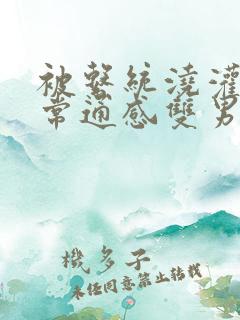 被繫統澆灌
常通感雙男
機多子
未經同意禁止轉載